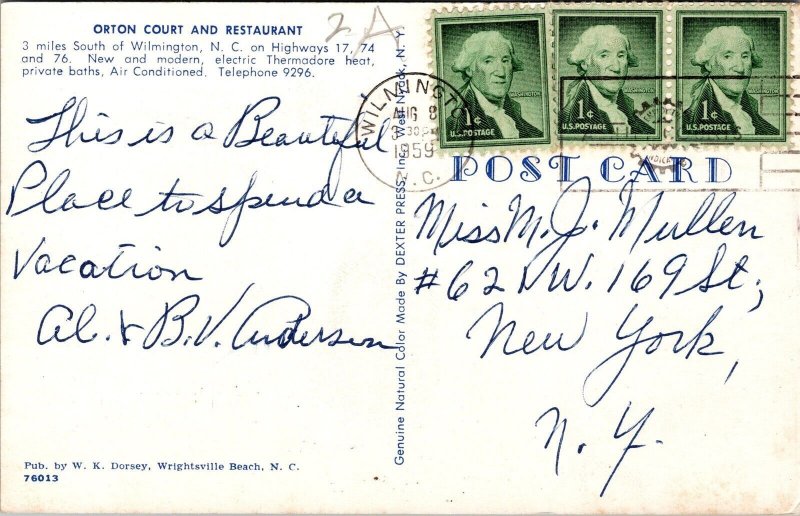 ORTON COURT AND RESTAURANT
3 miles South of Wilmington, N. C. on Highways 17, 74
and 76. New and modern, electric Thermadore heat,
private baths, Air Conditioned. Telephone 9296.
2A
This is a Beautiful
Place to spend a
Vacation
Al. & B. V. Anderson
Pub. by W. K. Dorsey, Wrightsville Beach, N. C.
76013
Genuine Natural Color Made By DEXTER PRESS, Inc. West Nyack, N. Y.
WILMINGTON
AUG 8
30 PM
1959
N. C.
1¢ WASHINGTON
U.S. POSTAGE
1¢ WASHINGTON
U.S. POSTAGE
1¢ WASHINGTON
U.S. POSTAGE
POST CARD
Miss M. J. Mullen
#62 W. 169 St,
New York,
N. Y.